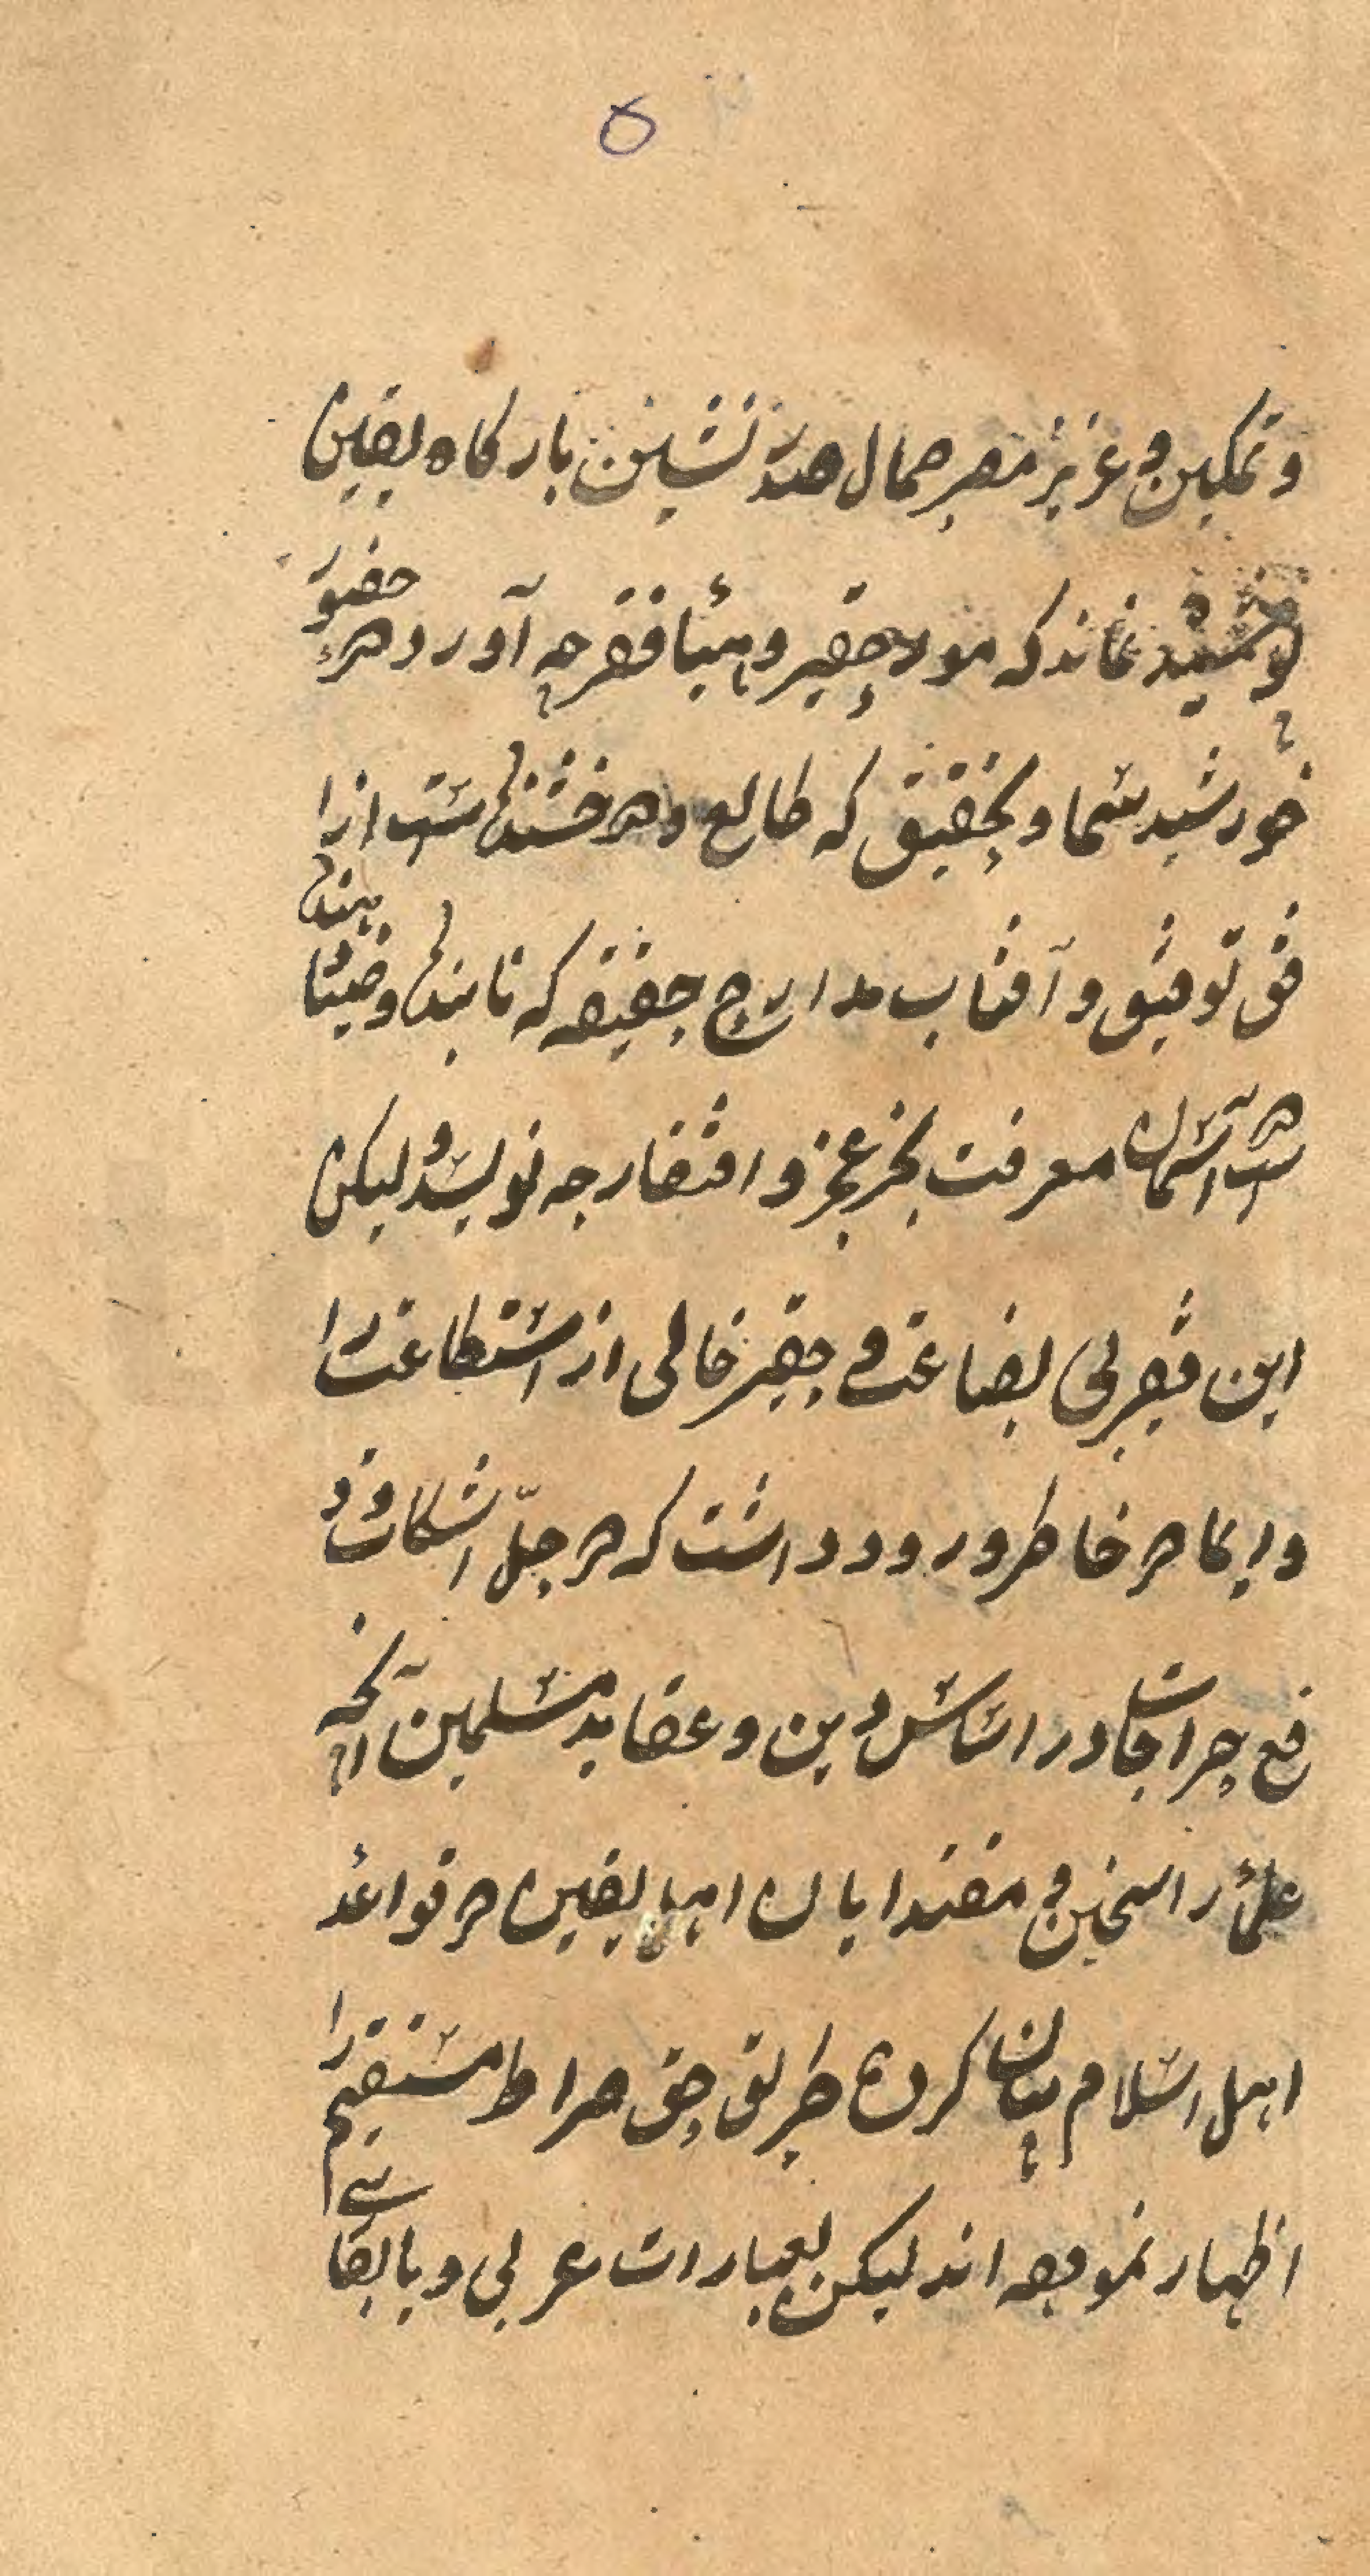 ۵
و تمکین و عزیز مصر جمال صدر نشین بارکاه یقین
پوشیده نماند که مور حقیر و هبا فقر چه آورد در حضور
خورشید سماو تحقیق که طالع و درخشنده است از ا
فق توفیق و آفتاب مدارج حقیقه که تابنده و ضیا دهنده
است در آسمان معرفت بجز عجز و افتقار چه نویسد و لیکن
این فقیر بی بضاعت و حقیر خالی از استطاعت را
در خاطر ورود داشت که در حل اشکالات و د
فع حراجات در اساس دین و عقاید مسلمین آنچه
علماء راسخین و مقتدایان اهل یقین در قواعد
اهل اسلام بیان کرده طریق حق صراط مستقیم را
اظهار نموده اند لیکن بعبارات عربی و با بقا